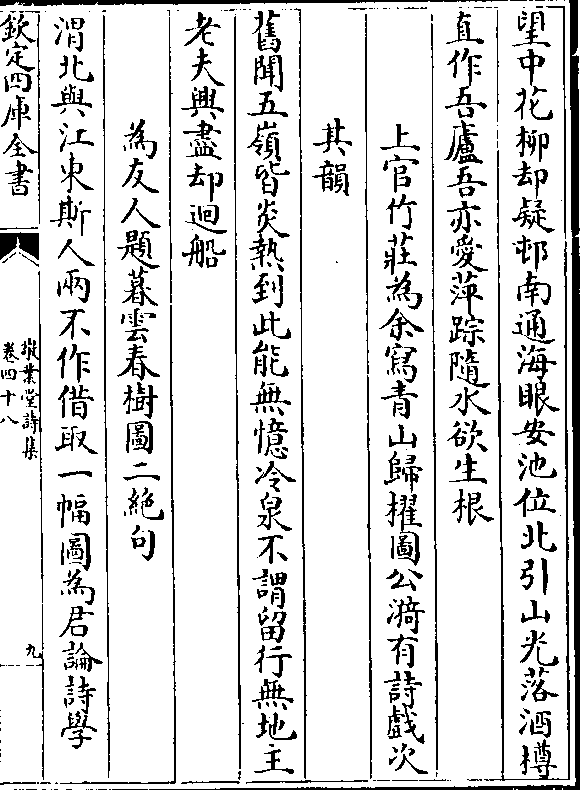 望中花柳却疑邨南通海眼安池位北引山光落酒樽
直作吾廬吾亦愛萍踪隨水欲生根
上官竹莊為余寫青山歸櫂圖公漪有詩戲次
其韻
舊聞五嶺皆炎熱到此能無憶冷泉不謂留行無地主
老夫興盡却迴船
為友人題暮雲春樹圖二絶句
渭北與江東斯人兩不作借取一幅圖為君論詩學
欽定四庫全書
敬業堂詩集
卷四十八
九